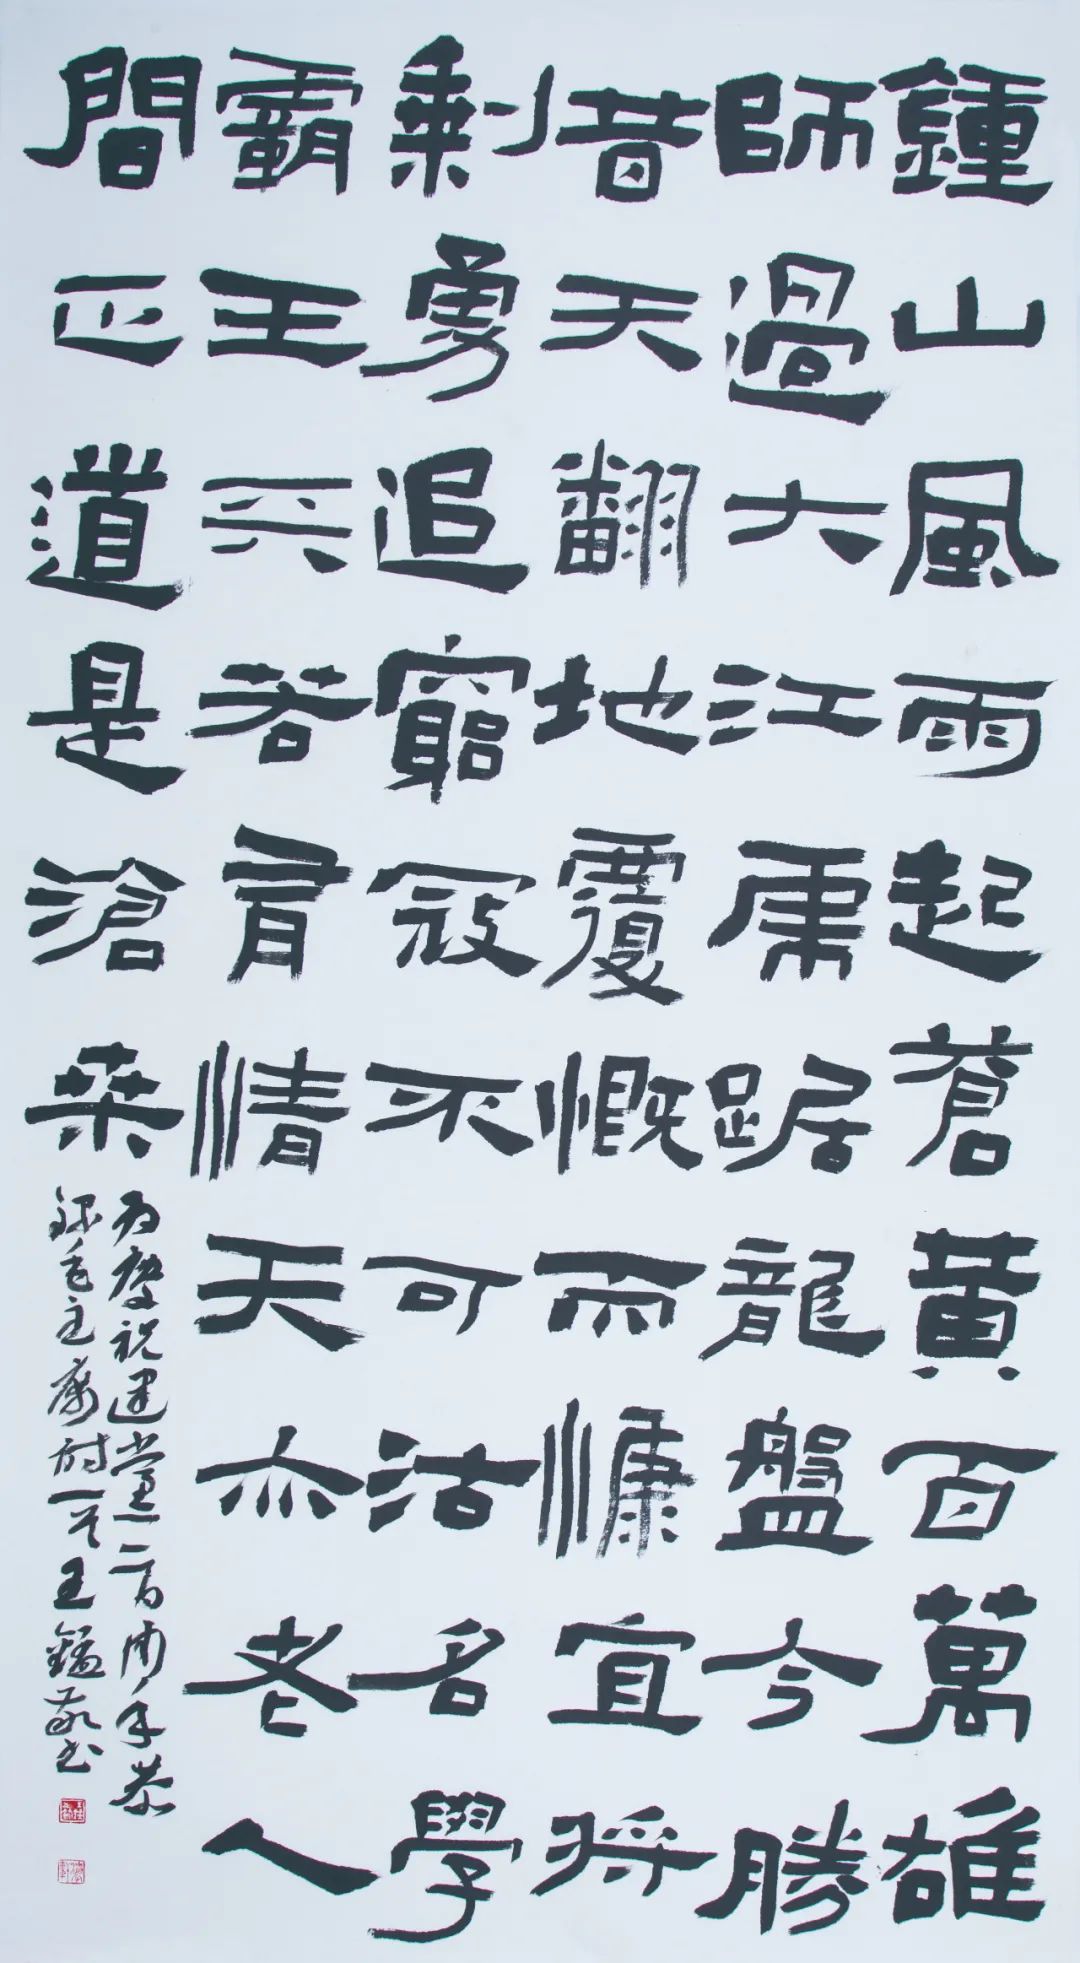 鍾山風雨起蒼黃百萬雄
師過大江虎踞龍盤今勝
昔天翻地覆慨而慷宜將
剩勇追窮寇不可沽名學
霸王兲若有情天亦老人
間正道是滄桒
为慶祝建黨一百周年恭
録毛主席詩一首王敬书